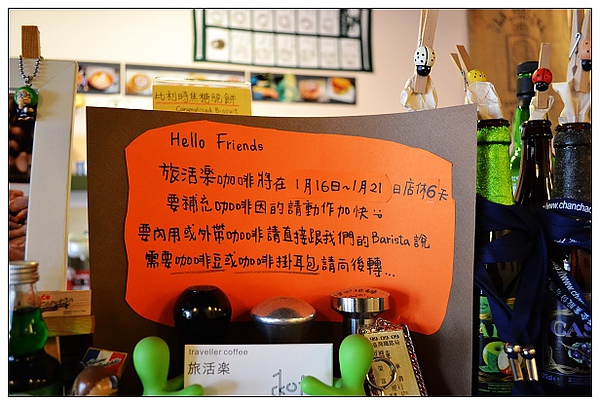 比利時焦糖脆餅
Caramelised Biscuit
Hello Friends
旅活楽咖啡將在 1月16日~1月21日店休6天
要補充咖啡因的請動作加快
要內用或外帶咖啡請直接跟我們的Barista說
需要咖啡豆或咖啡掛耳包請向後轉...
traveller coffee
旅活楽
www.chanchao